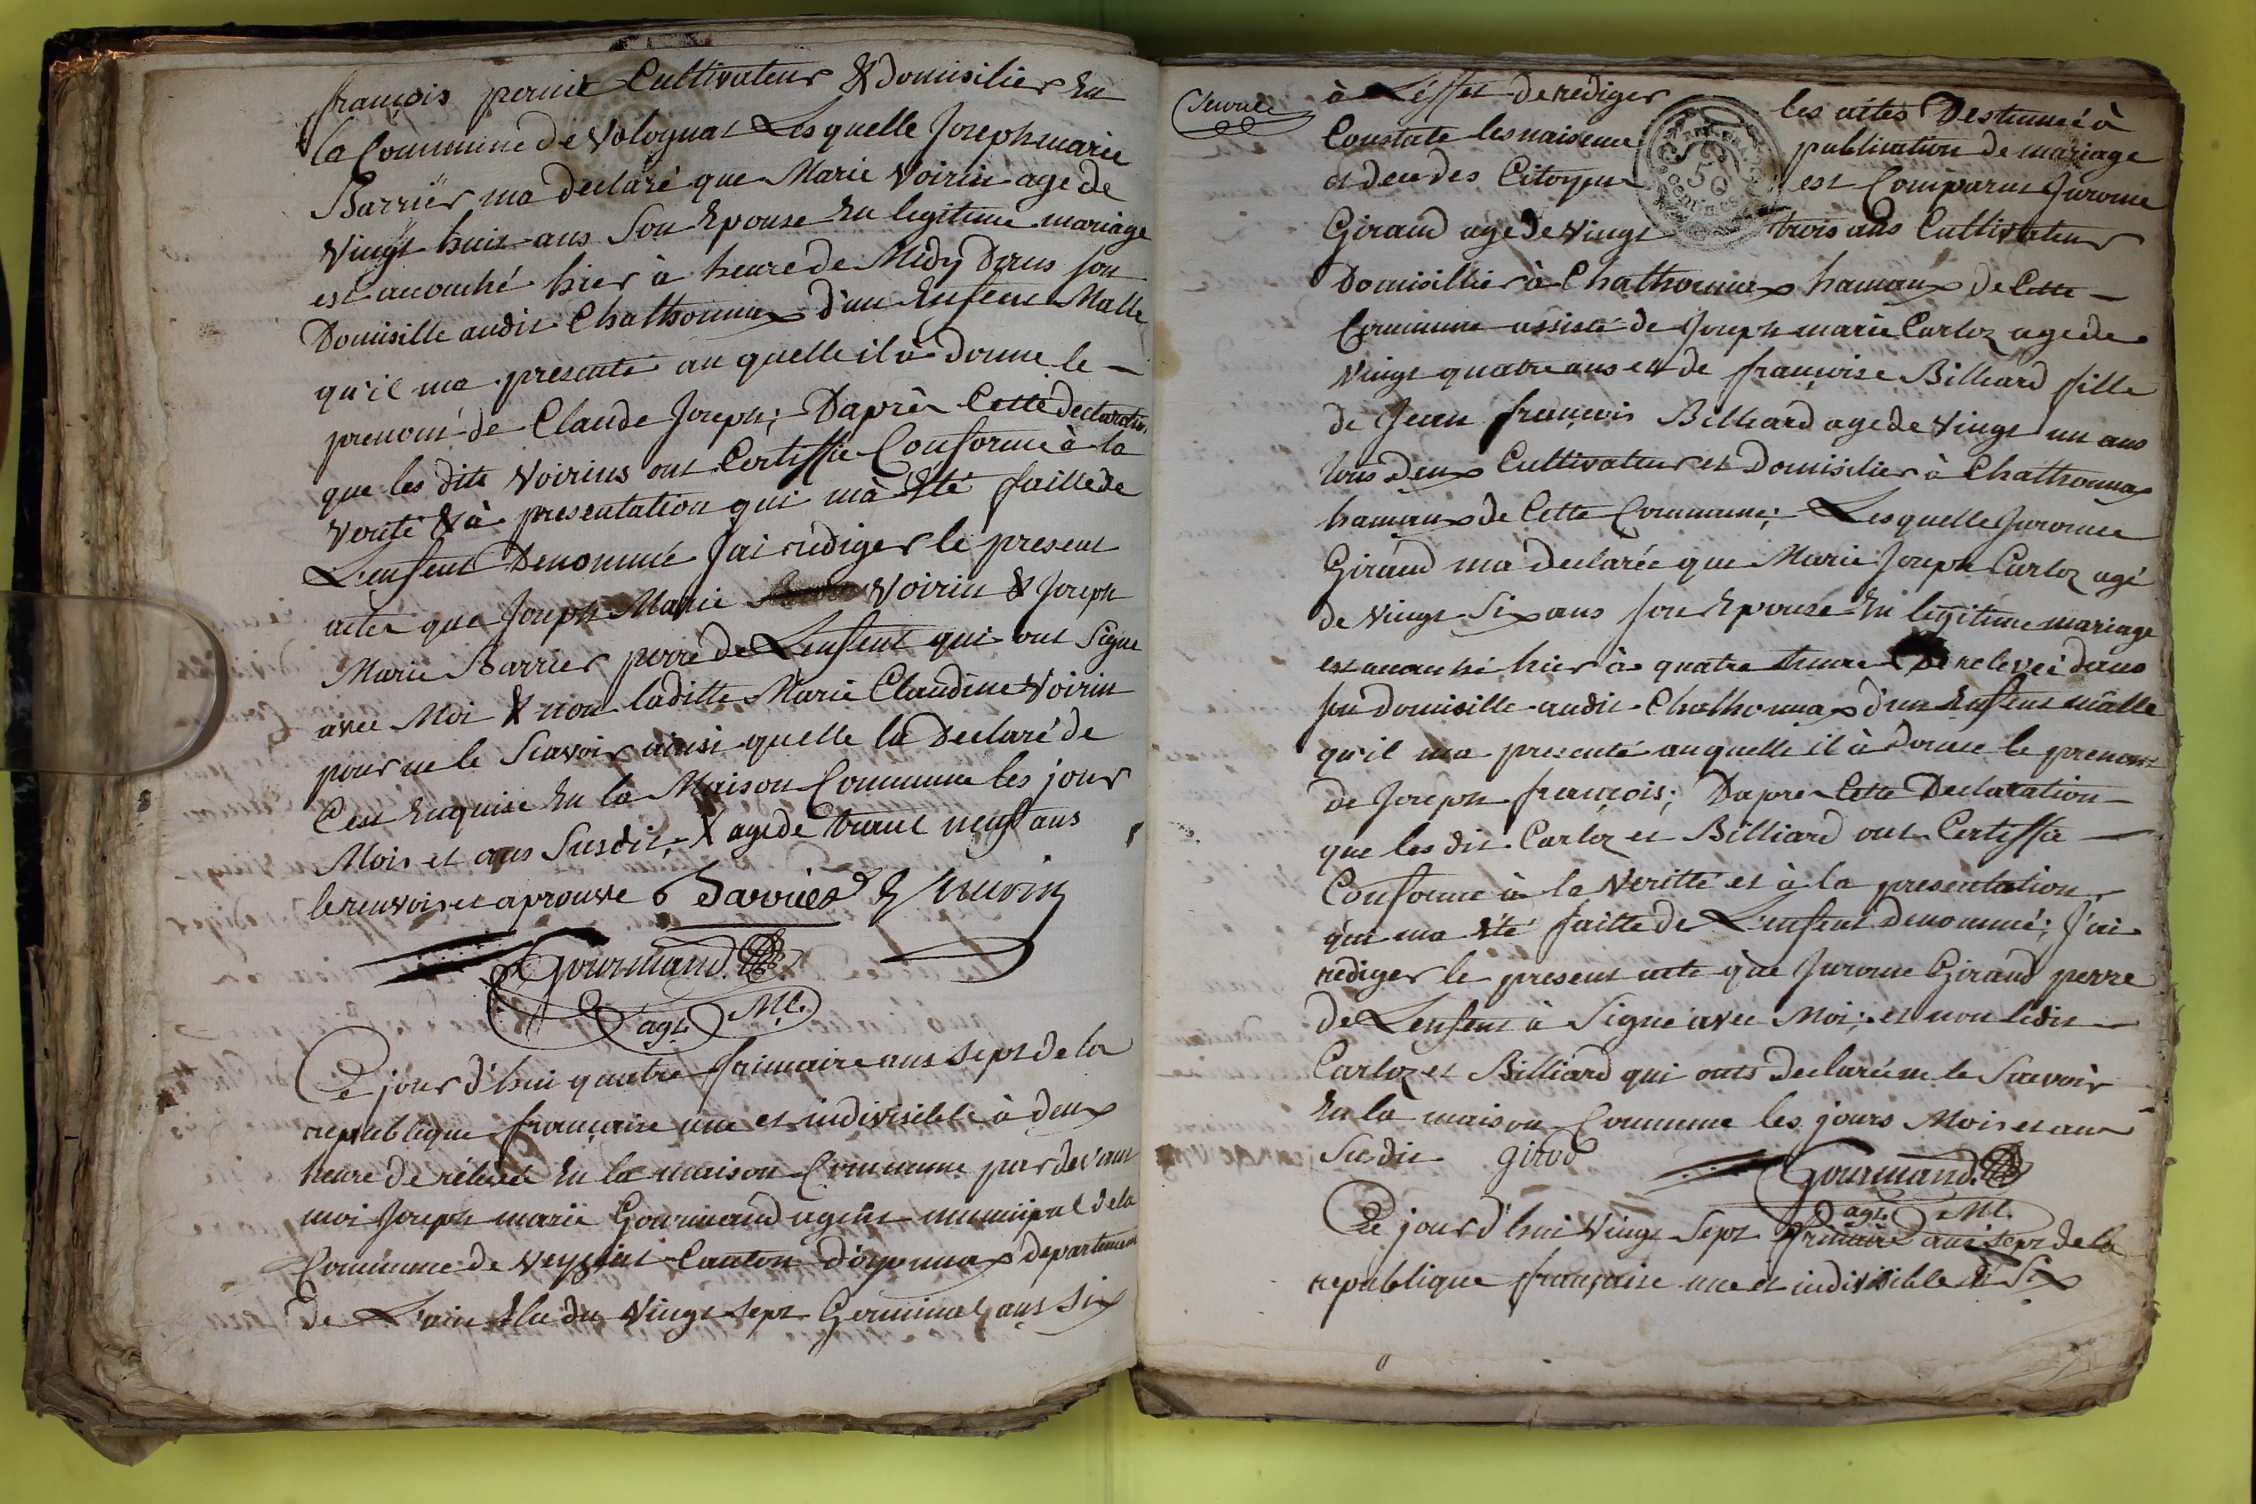 françois pernit Cultivateur & domisilier En
la Commune de Volognat Les quelle Joseph marie
Barrier ma declaré que Marie Voirin age de
Vingt huit ans Son Epouse En legitime mariage
est acouché hier à heure de Midy Dans son
Domisille audit Chathonnax d'un Enfent Malle
qu'il ma presenté au quelle il à donne le
prenom de Claude Joseph; Daprès Cette declaration
que les dits Voirins ont Certiffie Conforme à la
Verité & à presentation qui mà Eté faitte de
L'enfent Denommé J'ai rediger le present
acte que Joseph Marie Voirin & Joseph
Marie Barrier perre de L'enfent qui ont Signe
avec Moi & non laditte Marie Claudine Voirin
pour ne le Scavoir ainsi quelle la Declaré de
Cest Enquise En la Maison Commune les jour
Mois et ans Susdit, X age de trente neuf ans
le renvoir et aprouve Barrier Voirin
Gourmand
agt. Ml.
Ce jour d'hui quatre frimaire ans Sept de la
republique francaise une et indivisible à deux
heure De relevée En la maison Commune par devant
moi Joseph marie Gourmand agent municipal de la
Commune de Veyziat Canton d'oyonnax departement
de L'ain Elu du Vingt Sept Germinal ans Six
à L'effet de rediger les actes Destinné à
Constate les naisence publication de mariage
et decedes Citoyen est Comparut Jurome
Giraud age de Vingt trois ans Cultivateur
Domisillier à Chathonnax hamaux de Cette
Commune assiste de Joseph marie Carloz age de
Vingt quatre ans et de françoise Billiard fille
de Jean françois Billiard age de Vingt un ans
tous deux Cultivateur et Domisilier à Chathonnax
hamaux de Cette Commune; Les quelle Jurome
Giraud ma declarée que Marie Joseph Carloz agé
de Vingt Six ans Son Epouse En legitime mariage
est acouché hier à quatre heure De relevée dans
son Domisille audit Chathonnax d'un Enfent mâlle
qu'il ma presenté au quelle il à Donne le prenom
de Joseph françois; Daprè Cette Declaration
que les dit Carloz et Billiard ont Certiffie
Conforme à la Veritté et à la presentation
qui ma Eté faitte de L'enfent Denommé; J'ai
rediger le present acte que Jurome Giraud perre
de L'enfent à Signe avec Moi; et non ledit
Carloz et Billiard qui onts declaré ne le Scavoir
En la maison Commune les jours Mois et an
Susdit girod
Gourmand
agt. Ml.
Ce jour d'hui Vingt Sept frimaire ans Sept de la
republique française une et indivisible à Six